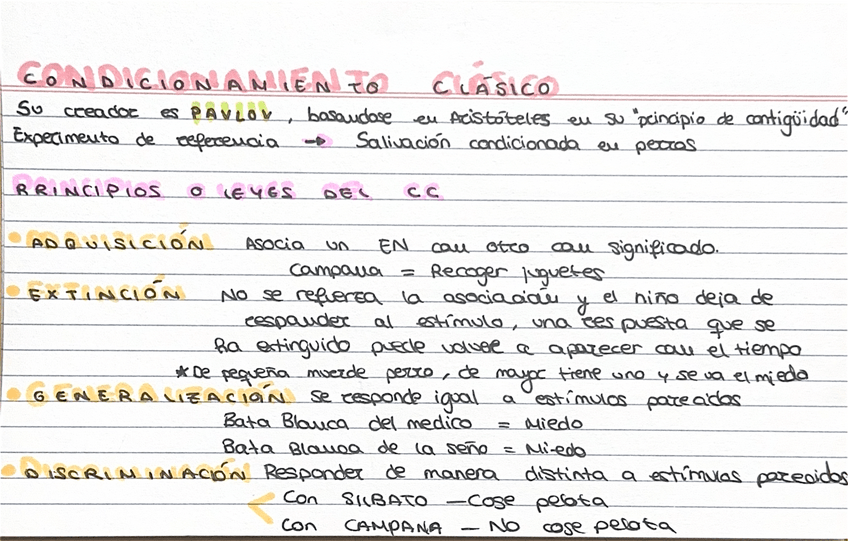 CONDICIONAMIENTO CLÁSICO
Su creador es PAVLOV, basandose en Aristóteles en su "principio de contigüidad"
Experimento de referencia → Salivación condicionada en perros
PRINCIPIOS O LEYES DEL CC
• ADQUISICIÓN Asocia un EN con otro con significado.
Campana = Recoger juguetes
• EXTINCIÓN No se refuerza la asociación y el niño deja de
responder al estímulo, una respuesta que se
ha extinguido puede volver a aparecer con el tiempo
*De pequeña muerde perro, de mayor tiene uno y se va el miedo
• GENERALIZACIÓN Se responde igual a estímulos parecidos
Bata Blanca del medico = Miedo
Bata Blanca de la seño = Miedo
• DISCRIMINACIÓN Responder de manera distinta a estímulos parecidos
< Con SILBATO — Cose pelota
Con CAMPANA — No cose pelota